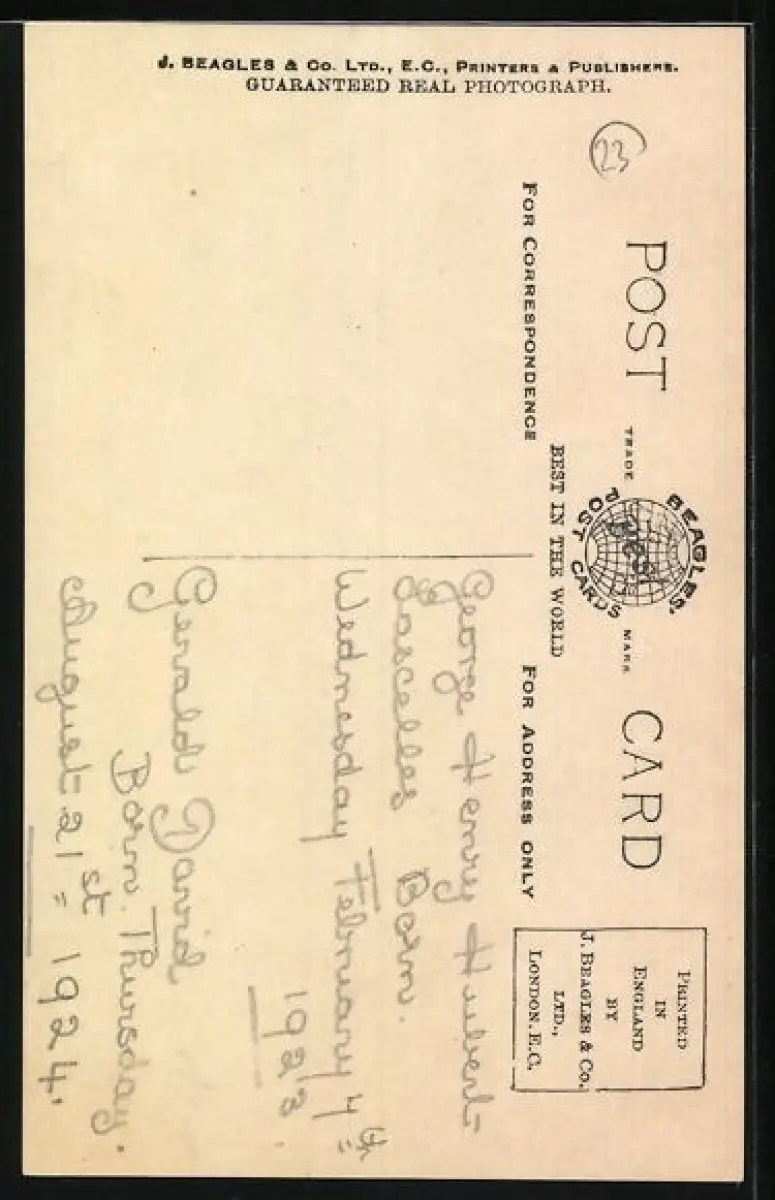 J. BEAGLES & Co. LTD., E.C., PRINTERS & PUBLISHERS.
GUARANTEED REAL PHOTOGRAPH.
23
POST CARD
TRADE MARK
BEAGLES'
BEST
POST CARDS
BEST IN THE WORLD
FOR CORRESPONDENCE
FOR ADDRESS ONLY
PRINTED
IN
ENGLAND
BY
J. BEAGLES & Co.
LTD.,
LONDON. E.C.
George Henry Hubert
Lascelles Born.
Wednesday February 7th
1923.
Gerald David
Born. Thursday.
August 21st 1924.